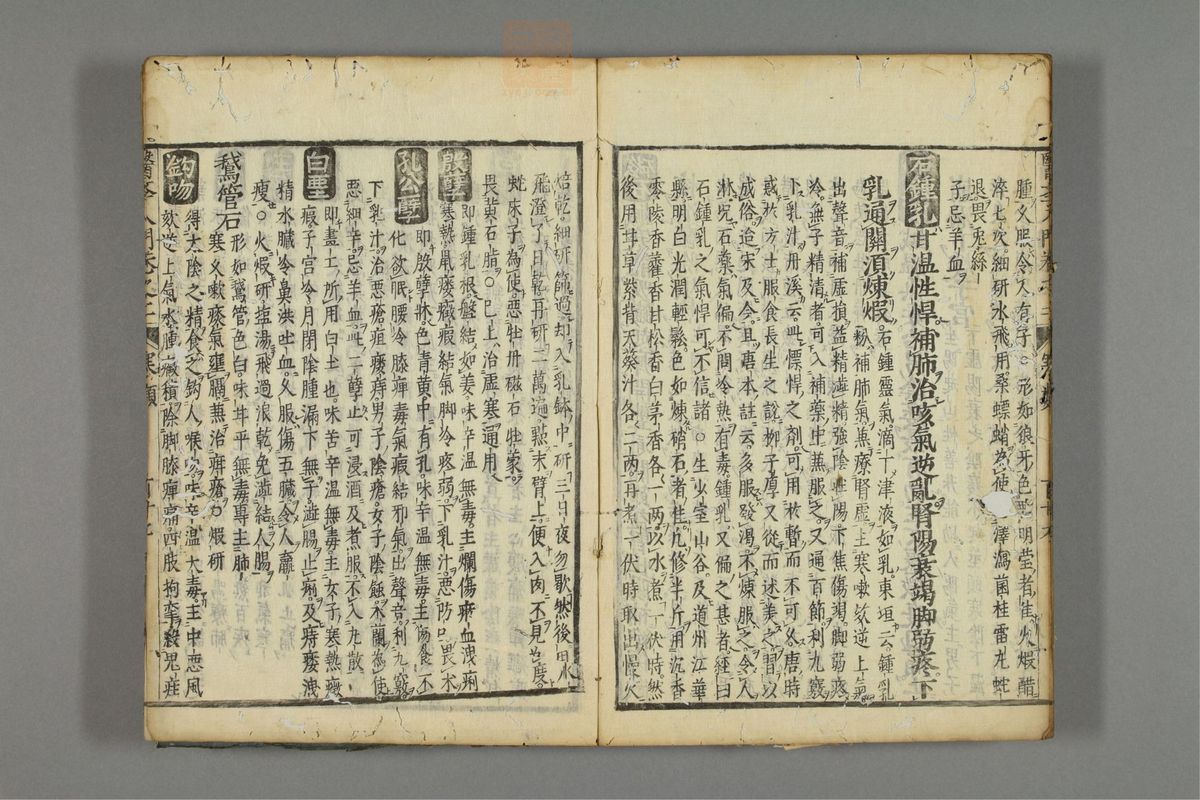 腫又服令人有子○形如狼牙色明堂者佳火煆醋
淬七次細研水飛用桑螵蛸為使澤瀉菌桂雷丸蛇
退畏兎絲
子忌羊血
石鍾乳甘温性悍補肺治咳氣逆亂腎陽衰竭脚弱疼下
乳通關須煉煆石鍾靈氣滴下津液如乳東垣云鍾乳
粉補肺氣兼療腎虚主寒嗽欬逆上氣
出聲音補虚損益精壯精強陰下焦傷竭脚弱疼
冷無子精清者可入補藥中蒸服之又通百節利九竅
下乳汁丹溪云此慓悍之劑可用於暫而不可久唐時
惑於方士服食長生之説柳子厚又從而述美之習以
成俗迨宋及今且唐本註云多服發渇不煉服之令人
淋況石藥氣偏不問冷熱有毒鍾乳又偏之甚者經曰
石鍾乳之氣悍可不信諸○生少室山谷及道州江華
縣明白光潤輕鬆色如煉硝石者佳凡修半斤用沉香
零陵香藿香甘松香白茅香各一兩以水煮一伏時然
後用甘草紫背天葵汁各二兩再煮一伏時取出慢火
焙乾細研篩過却入乳鉢中研三日夜勿歇然後用水
飛澄了日乾再研二萬遍㸃末臂上便入肉不見為度
蛇床子為使惡牡丹磁石牡蒙
畏黄石脂○已上治虚寒通用
殷孽即鍾乳根盤結如姜味辛温無毒主爛傷瘀血洩痢
寒熱鼠瘻癥瘕結氣脚冷疼弱下乳汁惡防已畏朮
孔公孽即殷孽牀色青黄中有孔味辛温無毒主傷食不
化欲眠腰冷膝痺毒氣瘕結邪氣出聲音利九竅
下乳汁治惡瘡疽瘻痔男子陰瘡女子陰蝕木蘭為使
惡細辛忌羊血此二孽止可浸酒及煮服不入丸散
白堊即畫工所用白土也味苦辛温無毒主女子寒熱癥
瘕子宮冷月閉陰腫漏下無子澁腸止痢及痔瘻洩
精水臟冷鼻洪吐血久服傷五臟令人羸
瘦○火煆研塩湯飛過浪乾免澁結人腸
鵞管石形如鵞管色白味甘平無毒專主肺
寒久嗽痰氣壅膈兼治癬瘡○煆研
鈎吻得太陰之精食之鈎人喉吻味辛温大毒主中惡風
欬逆上氣水腫癥積除脚膝痺痛四肢拘攣殺鬼疰